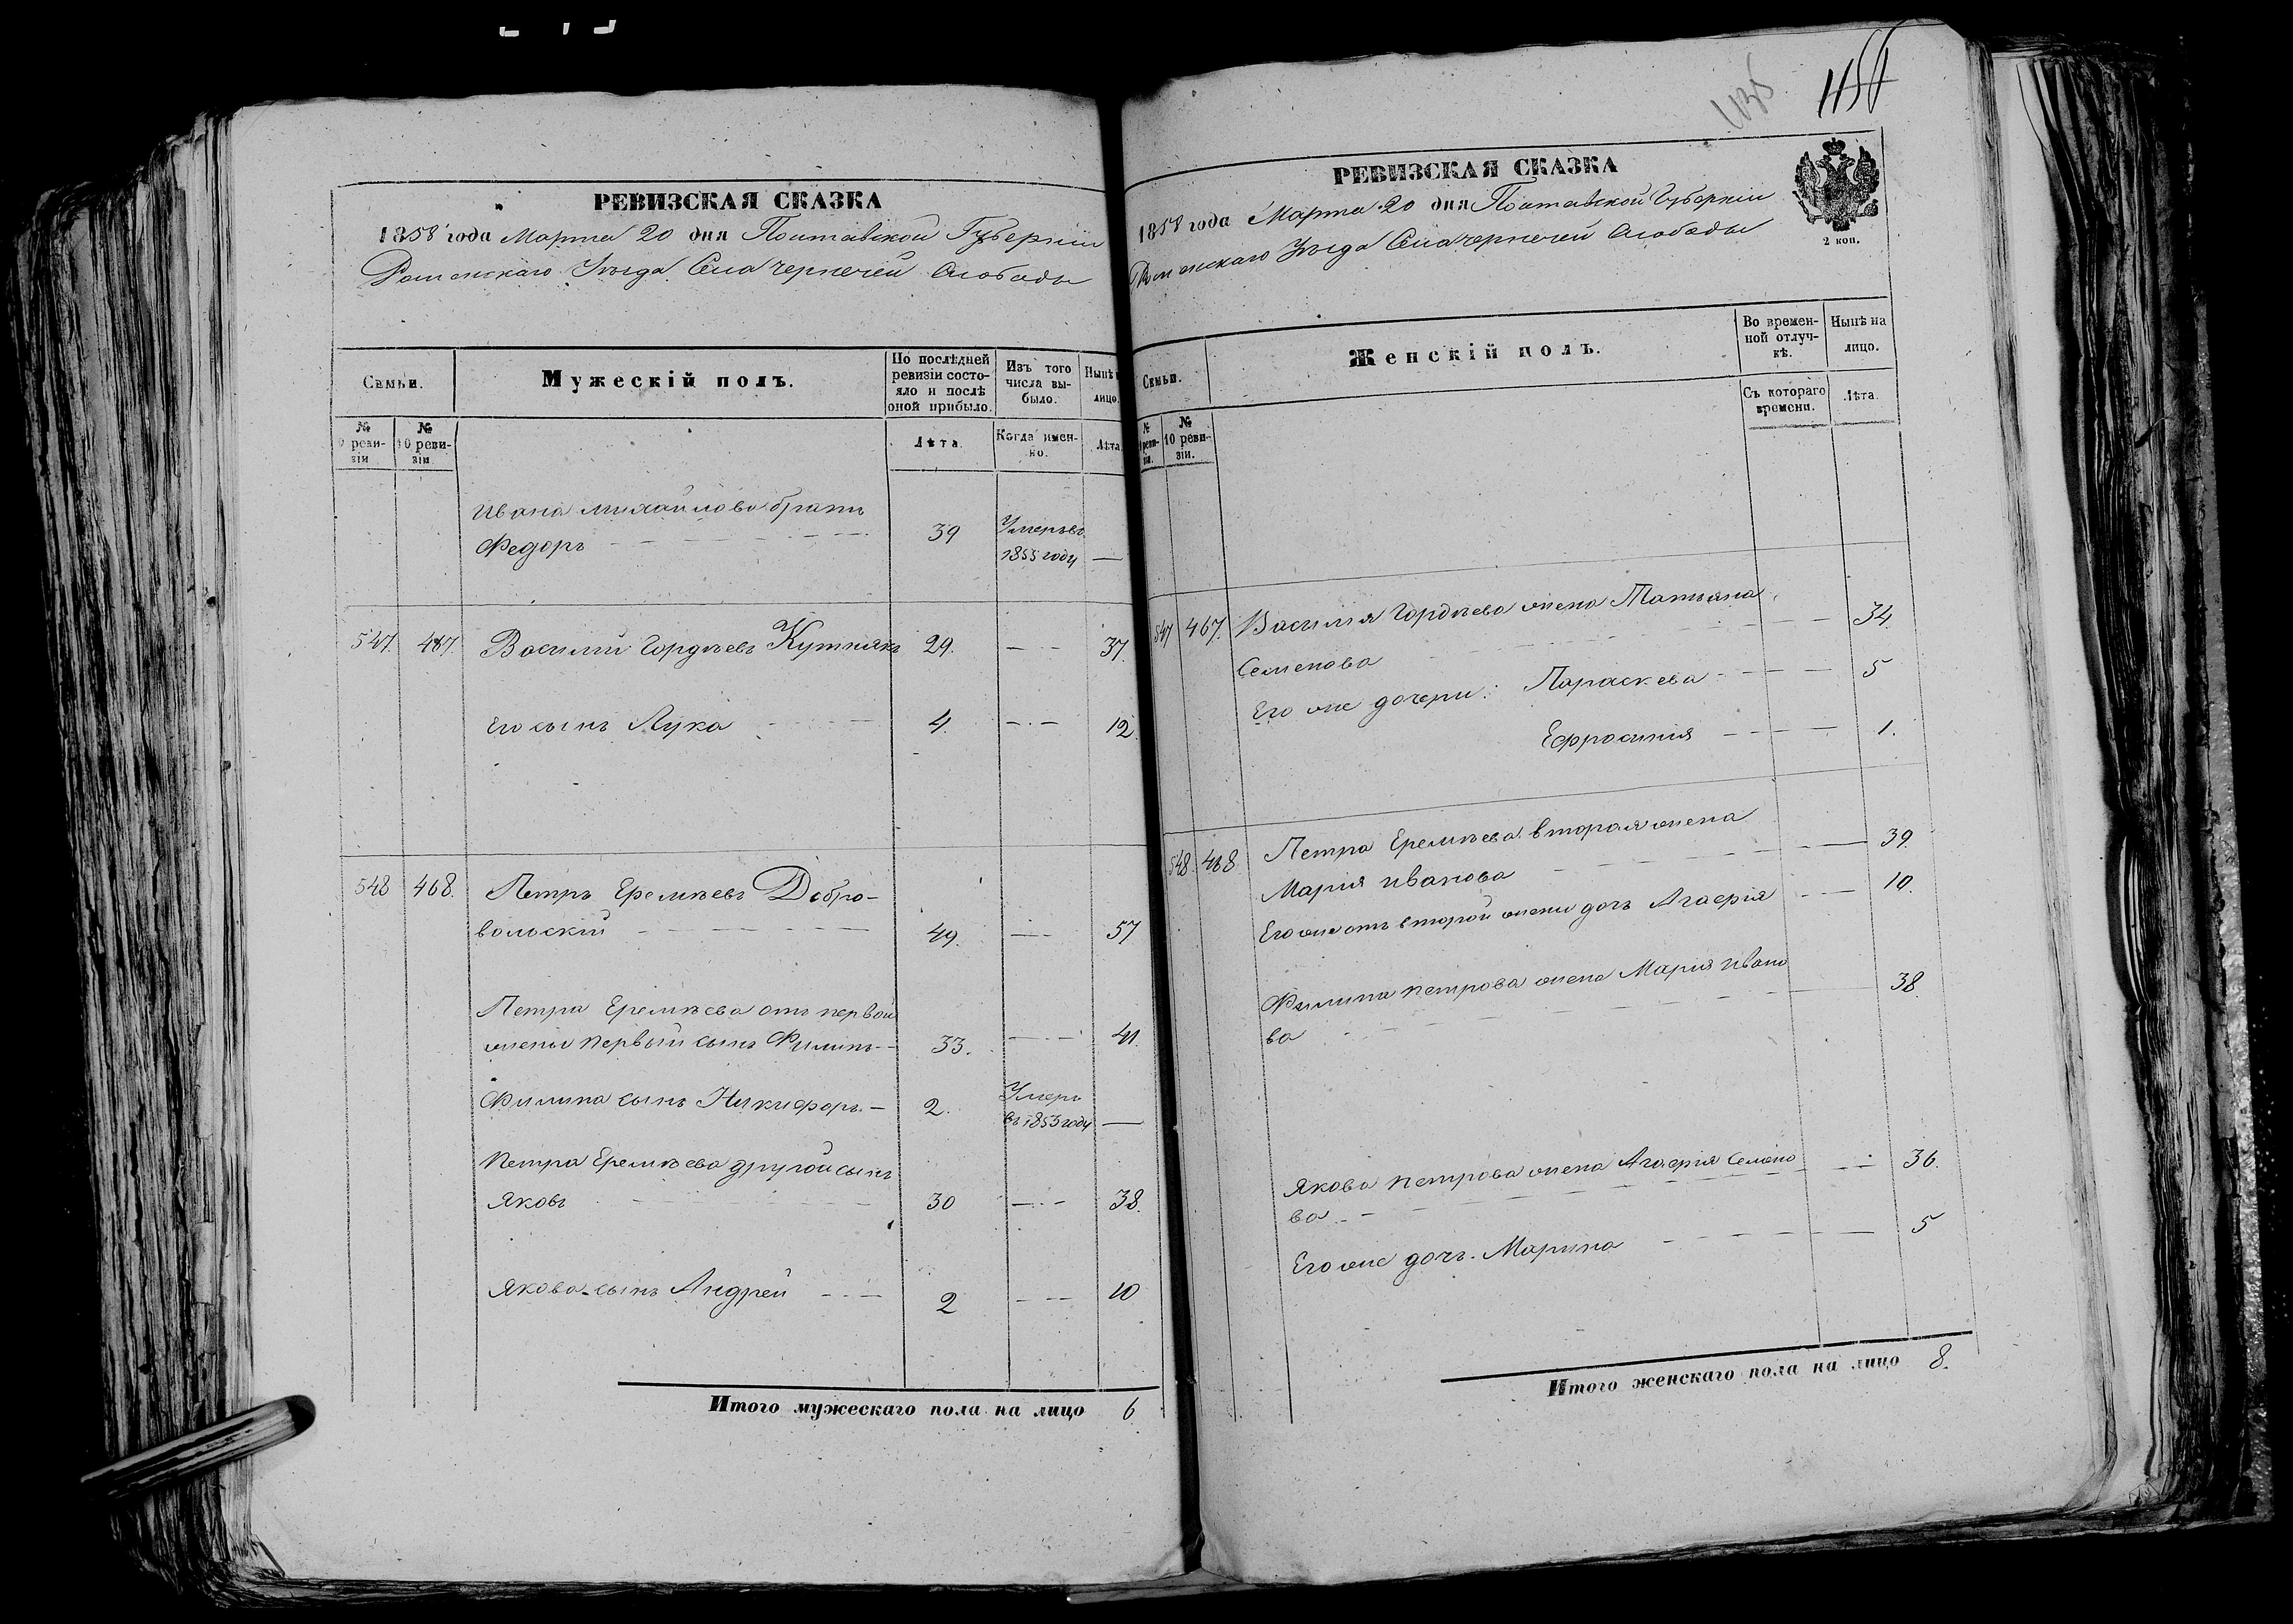 РЕВИЗСКАЯ СКАЗКА
1858 года Марта 20 дня Полтавской Губерніи
Роменскаго Уѣзда Села Чернечей Слободы
Семьи.
Мужескій полъ.
По послѣдней ревизіи состояло и послѣ оной прибыло.
Изъ того числа выбыло.
Нынѣ
лицо.
№ 9 ревизіи
№ 10 ревизіи.
Лѣта.
Когда именно.
Лѣта
Ивана Михайлова братъ
Федоръ 39 Умеръ въ 1855 году —
547. 467. Василій Гордѣевъ Кутнякъ 29. — 37.
Его сынъ Лука 4. — 12.
548 468. Петръ Еремѣевъ Добро-
вольскій 49. — 57
Петра Еремѣева отъ первой
жены первый сынъ Филипъ 33. — 41.
Филипа сынъ Никифоръ — 2. Умеръ въ 1853 году —
Петра Еремѣева другой сынъ
Яковъ 30 — 38.
Якова сынъ Андрей 2 — 10
Итого мужескаго пола на лицо 6
435
РЕВИЗСКАЯ СКАЗКА
2 коп.
1858 года Марта 20 дня Полтавской Губерніи
Роменскаго Уѣзда Села Чернечей Слободы
Семьи.
Женскій полъ.
Во временной отлучкѣ.
Нынѣ на лицо.
№ 9 ревизіи.
№ 10 ревизіи.
Съ котораго времени.
Лѣта.
547 467. Василія Гордѣева жена Татьяна
Семенова — 34.
Его же дочери: Параскева — 5
Ефросинія — 1.
548. 468 Петра Еремѣева вторая жена
Марія Иванова — 39.
Его же отъ второй жены дочь Агафія — 10.
Филипа Петрова жена Марія Ивано
ва — 38.
Якова Петрова жена Агафія Семено
ва — 36.
Его же дочь Марина — 5
Итого женскаго пола на лицо 8.